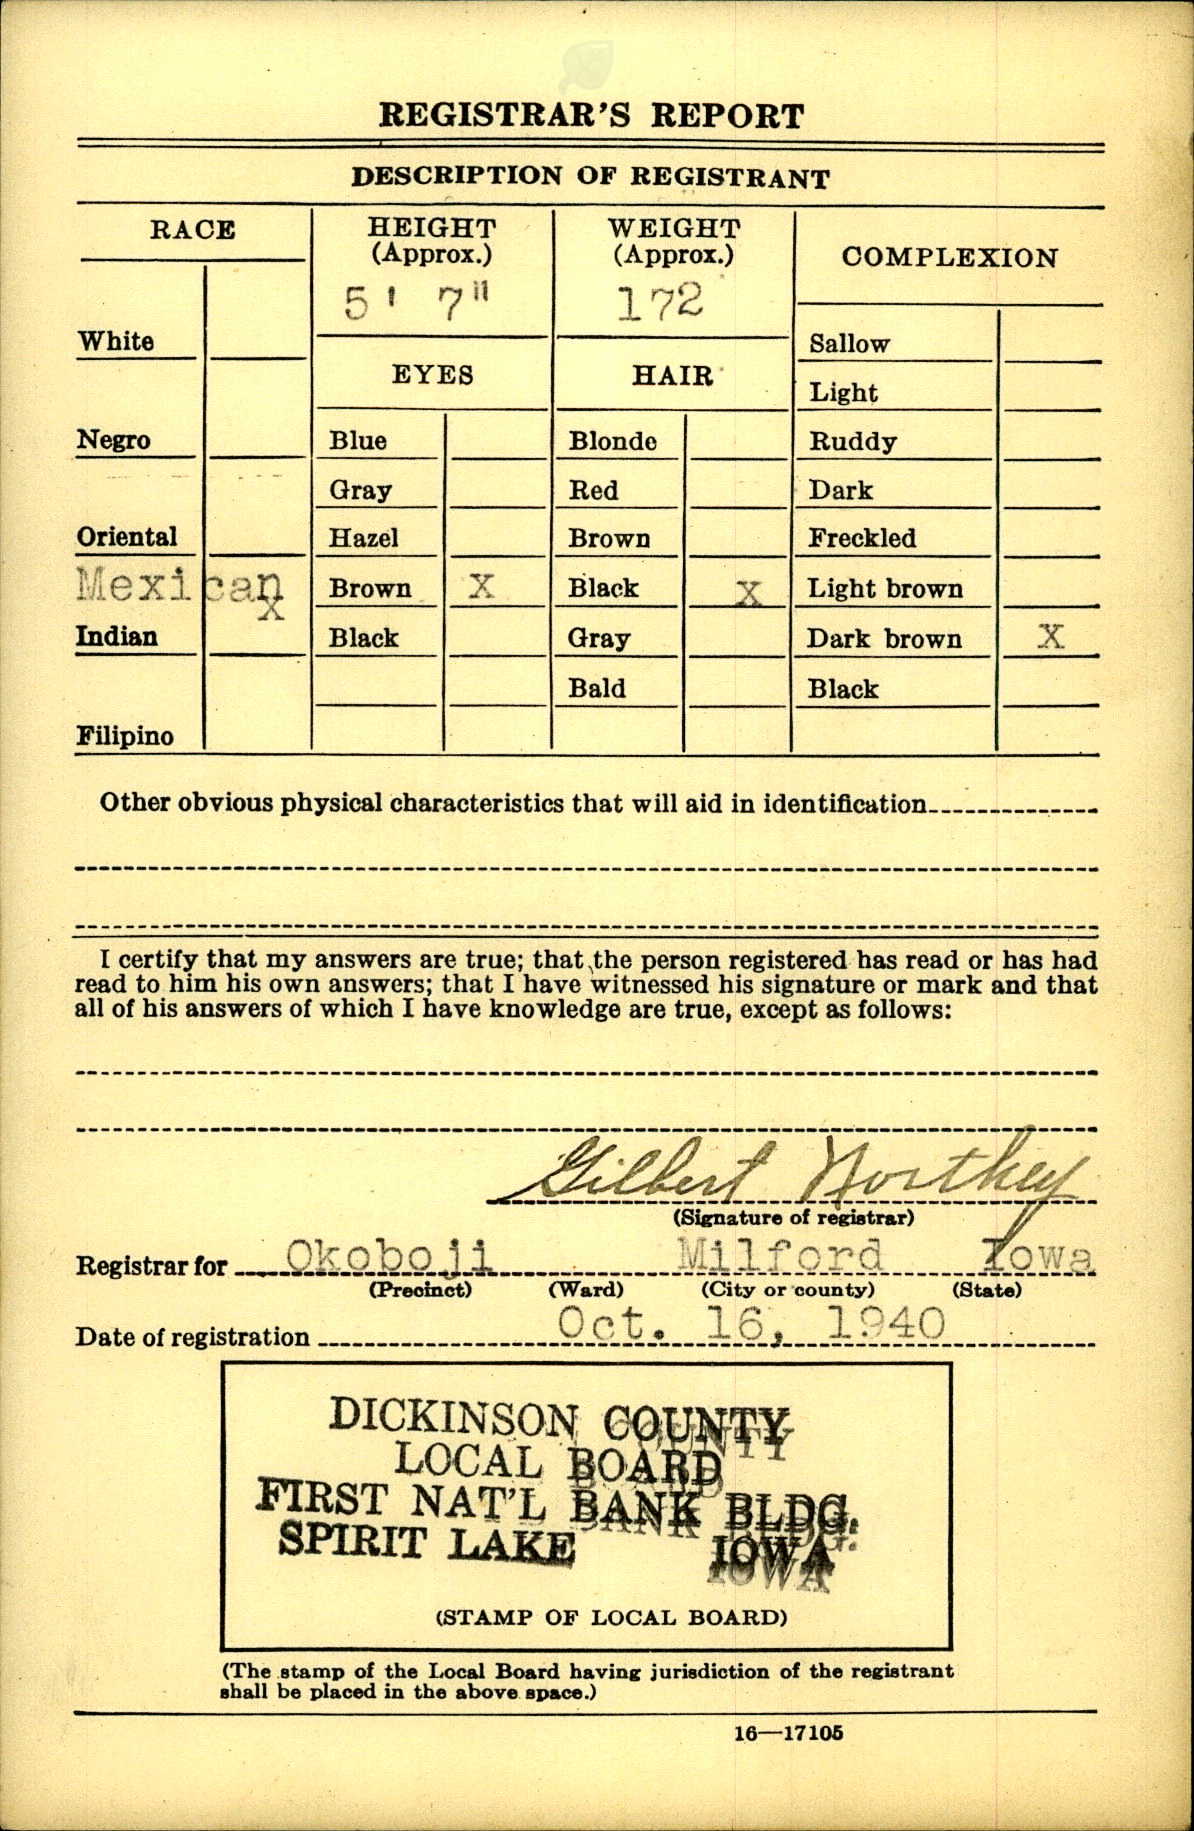 REGISTRAR'S REPORT
DESCRIPTION OF REGISTRANT
RACE
HEIGHT
(Approx.)
WEIGHT
(Approx.)
COMPLEXION
5' 7"
172
White
Sallow
EYES
HAIR
Light
Negro
Blue
Blonde
Ruddy
Gray
Red
Dark
Oriental
Hazel
Brown
Freckled
Mexican X
Brown X
Black X
Light brown
Indian
Black
Gray
Dark brown X
Bald
Black
Filipino
Other obvious physical characteristics that will aid in identification
I certify that my answers are true; that the person registered has read or has had
read to him his own answers; that I have witnessed his signature or mark and that
all of his answers of which I have knowledge are true, except as follows:
Gilbert Northey
(Signature of registrar)
Registrar for Okoboji Milford Iowa
(Precinct) (Ward) (City or county) (State)
Date of registration Oct. 16, 1940
DICKINSON COUNTY
LOCAL BOARD
FIRST NAT'L BANK BLDG.
SPIRIT LAKE IOWA
(STAMP OF LOCAL BOARD)
(The stamp of the Local Board having jurisdiction of the registrant
shall be placed in the above space.)
16—17105